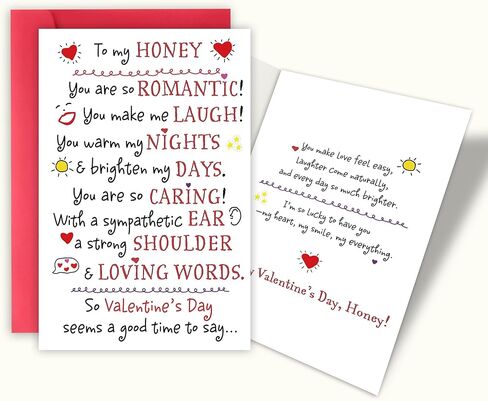 To my HONEY
You are so ROMANTIC!
You make me LAUGH!
You warm my NIGHTS
& brighten my DAYS.
You are so CARING!
With a sympathetic EAR
a strong SHOULDER
& LOVING WORDS.
So Valentine's Day
seems a good time to say...
You make love feel easy,
laughter come naturally,
and every day so much brighter.
I'm so lucky to have you
—my heart, my smile, my everything.
Valentine's Day, Honey!